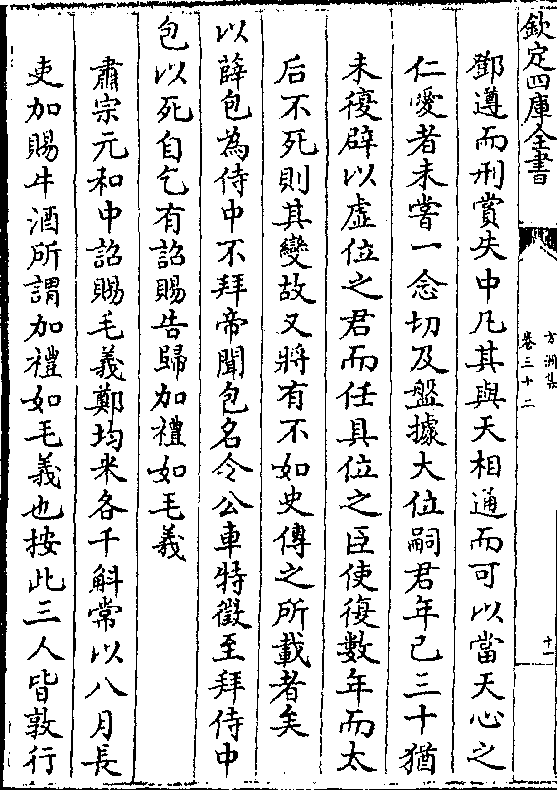 欽定四庫全書
方洲集
卷三十二
十一
鄧遵而刑賞失中凡其與天相通而可以當天心之
仁愛者未嘗一念切及盤據大位嗣君年已三十猶
未復辟以虛位之君而任具位之臣使復數年而太
后不死則其變故又將有不如史傳之所載者矣
以薛包為侍中不拜帝聞包名令公車特徵至拜侍中
包以死自乞有詔賜告歸加禮如毛義
肅宗元和中詔賜毛義鄭均米各千斛常以八月長
吏加賜牛酒所謂加禮如毛義也按此三人皆敦行